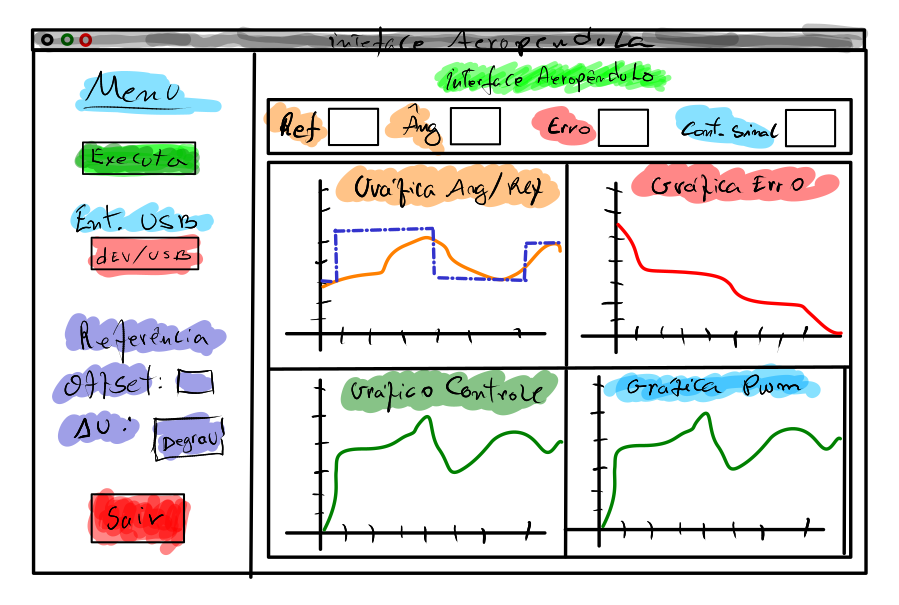 interface Aeropendula
Menu
Executa
Ent. USB
dEV/USB
Referência
Offset:
ΔU:
Degrau
Sair
interface Aeropêndulo
Ref
Âng
Erro
Cont. Sinal
Gráfica Ang/Ref
Gráfica Erro
Gráfico Controle
Gráfica Pwm